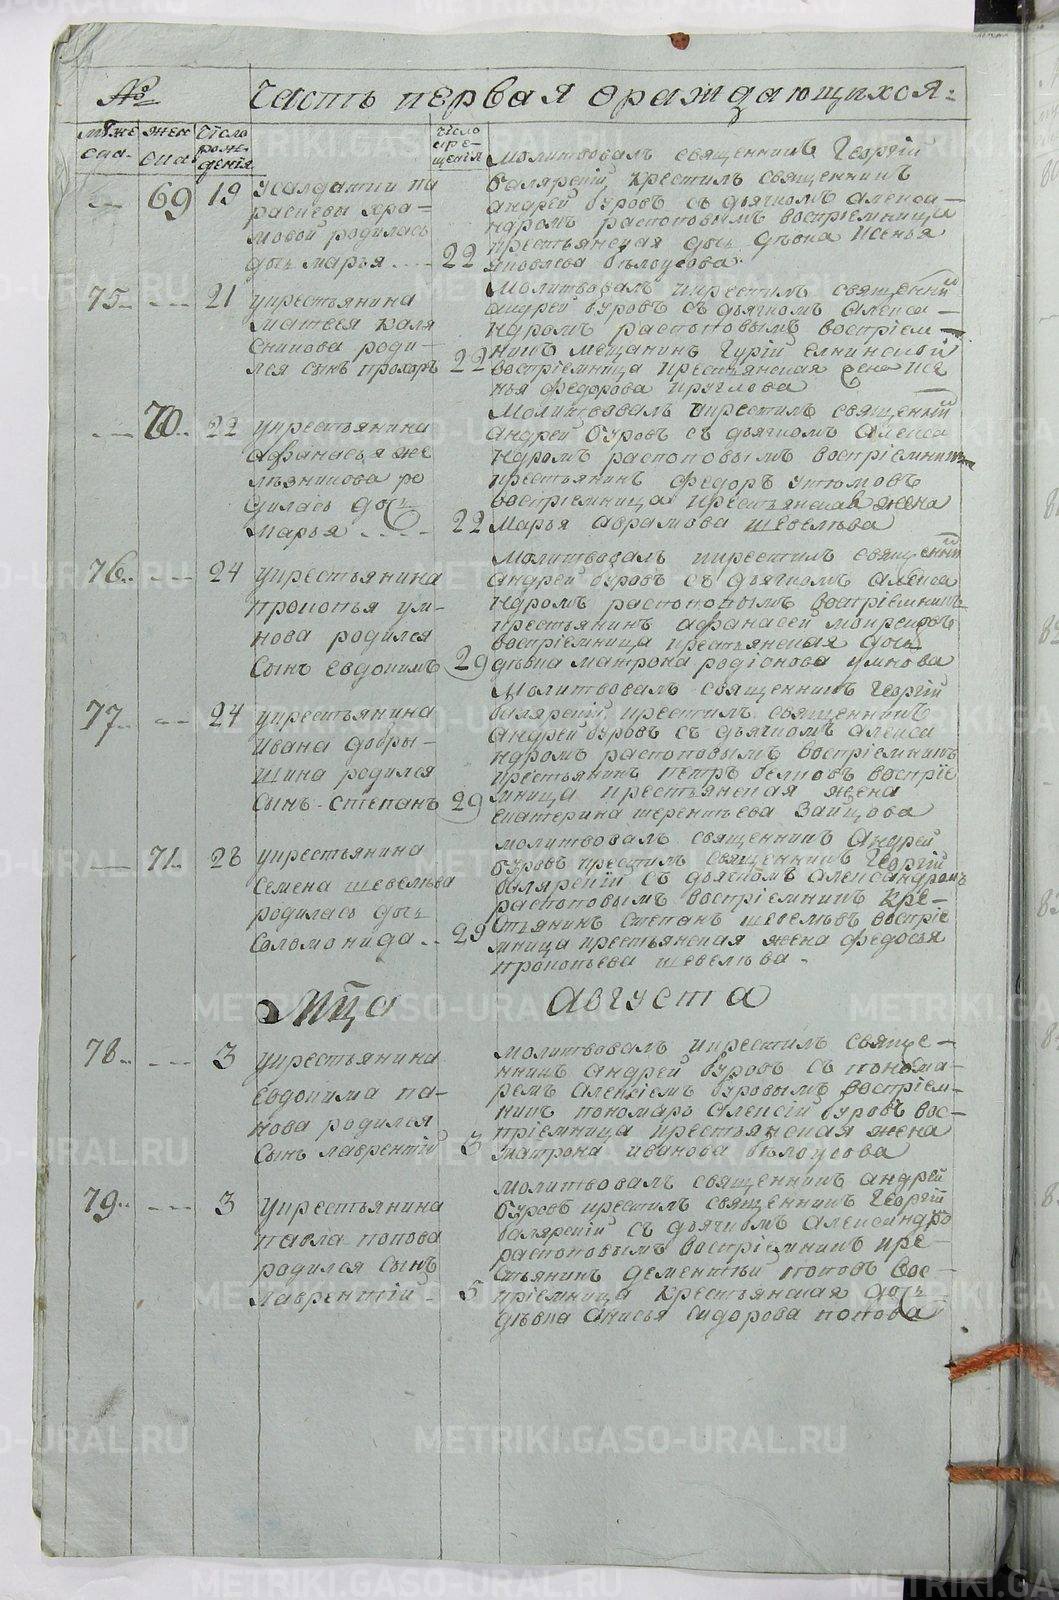 №
Часть первая о раждающихся:
муже
ска
жен
ска
число
рож-
денія
число
кре-
щенія
69 19 У салдатки па
раскевы хра-
мовой родилась
дочь марья 22
Молитвовалъ священникъ Георгій
баляреній, крестилъ священникъ
андрей буровъ съ дьячкомъ алекса-
ндромъ распоповымъ воспріемница
крестьянская дочь дѣвка Ксенья
яковлева бѣлоусова.
75 21 укрестьянина
матвея каля
сникова роди-
лся сынъ прохоръ 22
Молитвовалъ икрестилъ священий
андрей буровъ съ дьячкомъ алекса-
ндромъ распоповымъ воспріем-
никъ мещанинъ Гурій елнинской
воспріемница крестьянская жена Ксе
нья федорова круглова
70 22 укрестьянина
афанасья ме
льникова ро
дилась дочь
марья 22
Молитвовалъ икрестилъ священий
андрей буровъ съ дьячкомъ алекса
ндромъ распоповымъ воспріемникъ
крестьянинъ федоръ утюмовъ
воспріемница крестьянская жена
Марья аврамова шевелѣва
76 24 укрестьянина
прокопья ум-
нова родился
сынъ евдокимъ 29
Молитвовалъ икрестилъ священий
андрей буровъ съ дьячкомъ алекса
ндромъ распоповымъ воспріемникъ
крестьянинъ афанасей
воспріемница крестьянская дочь
дѣвка матрона родіонова умнова
77 24 укрестьянина
ивана добры-
шина родился
сынъ степанъ 29
Молитвовалъ священникъ Георгій
баляреній, крестилъ священникъ
андрей буровъ съ дьячкомъ алекса
ндромъ распоповымъ воспріемникъ
крестьянинъ петръ беликовъ воспріе
мница крестьянская жена
екатерина терентьева зайцова
71 28 укрестьянина
семена шевелѣва
родилась дочь
соломонида 29
молитвовалъ священникъ Андрей
буровъ крестилъ священникъ Георгій
баляреній съ дьячкомъ александромъ
распоповымъ воспріемникъ кре-
стьянинъ степанъ шевелѣвъ воспріе
мница крестьянская жена федосья
прокопьева шевелѣва.
Мца Августа
78 3 укрестьянина
евдокима па-
нова родился
сынъ лаврентій 3
молитвовалъ икрестилъ свяще-
нникъ андрей буровъ съ понома-
ремъ алексіемъ буровымъ воспріем-
никъ пономарь алексій буровъ вос-
пріемница крестьянская жена
матрона иванова бѣлоусова
79 3 укрестьянина
павла попова
родился сынъ
лаврентій 5
молитвовалъ священникъ андрей
буровъ крестилъ священникъ Георгій
баляреній съ дьячкомъ александръ
распоповымъ воспріемникъ кре-
стьянинъ дементьи поповъ вос-
пріемница крестьянская дочь
дѣвка анисья сидорова попова
METRIKI.GASO-URAL.RU